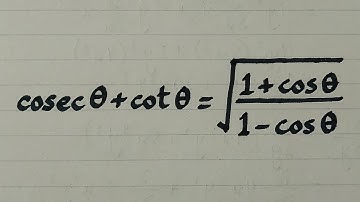 cosec θ + cot θ = √((1 + cos θ)/(1 - cos θ))